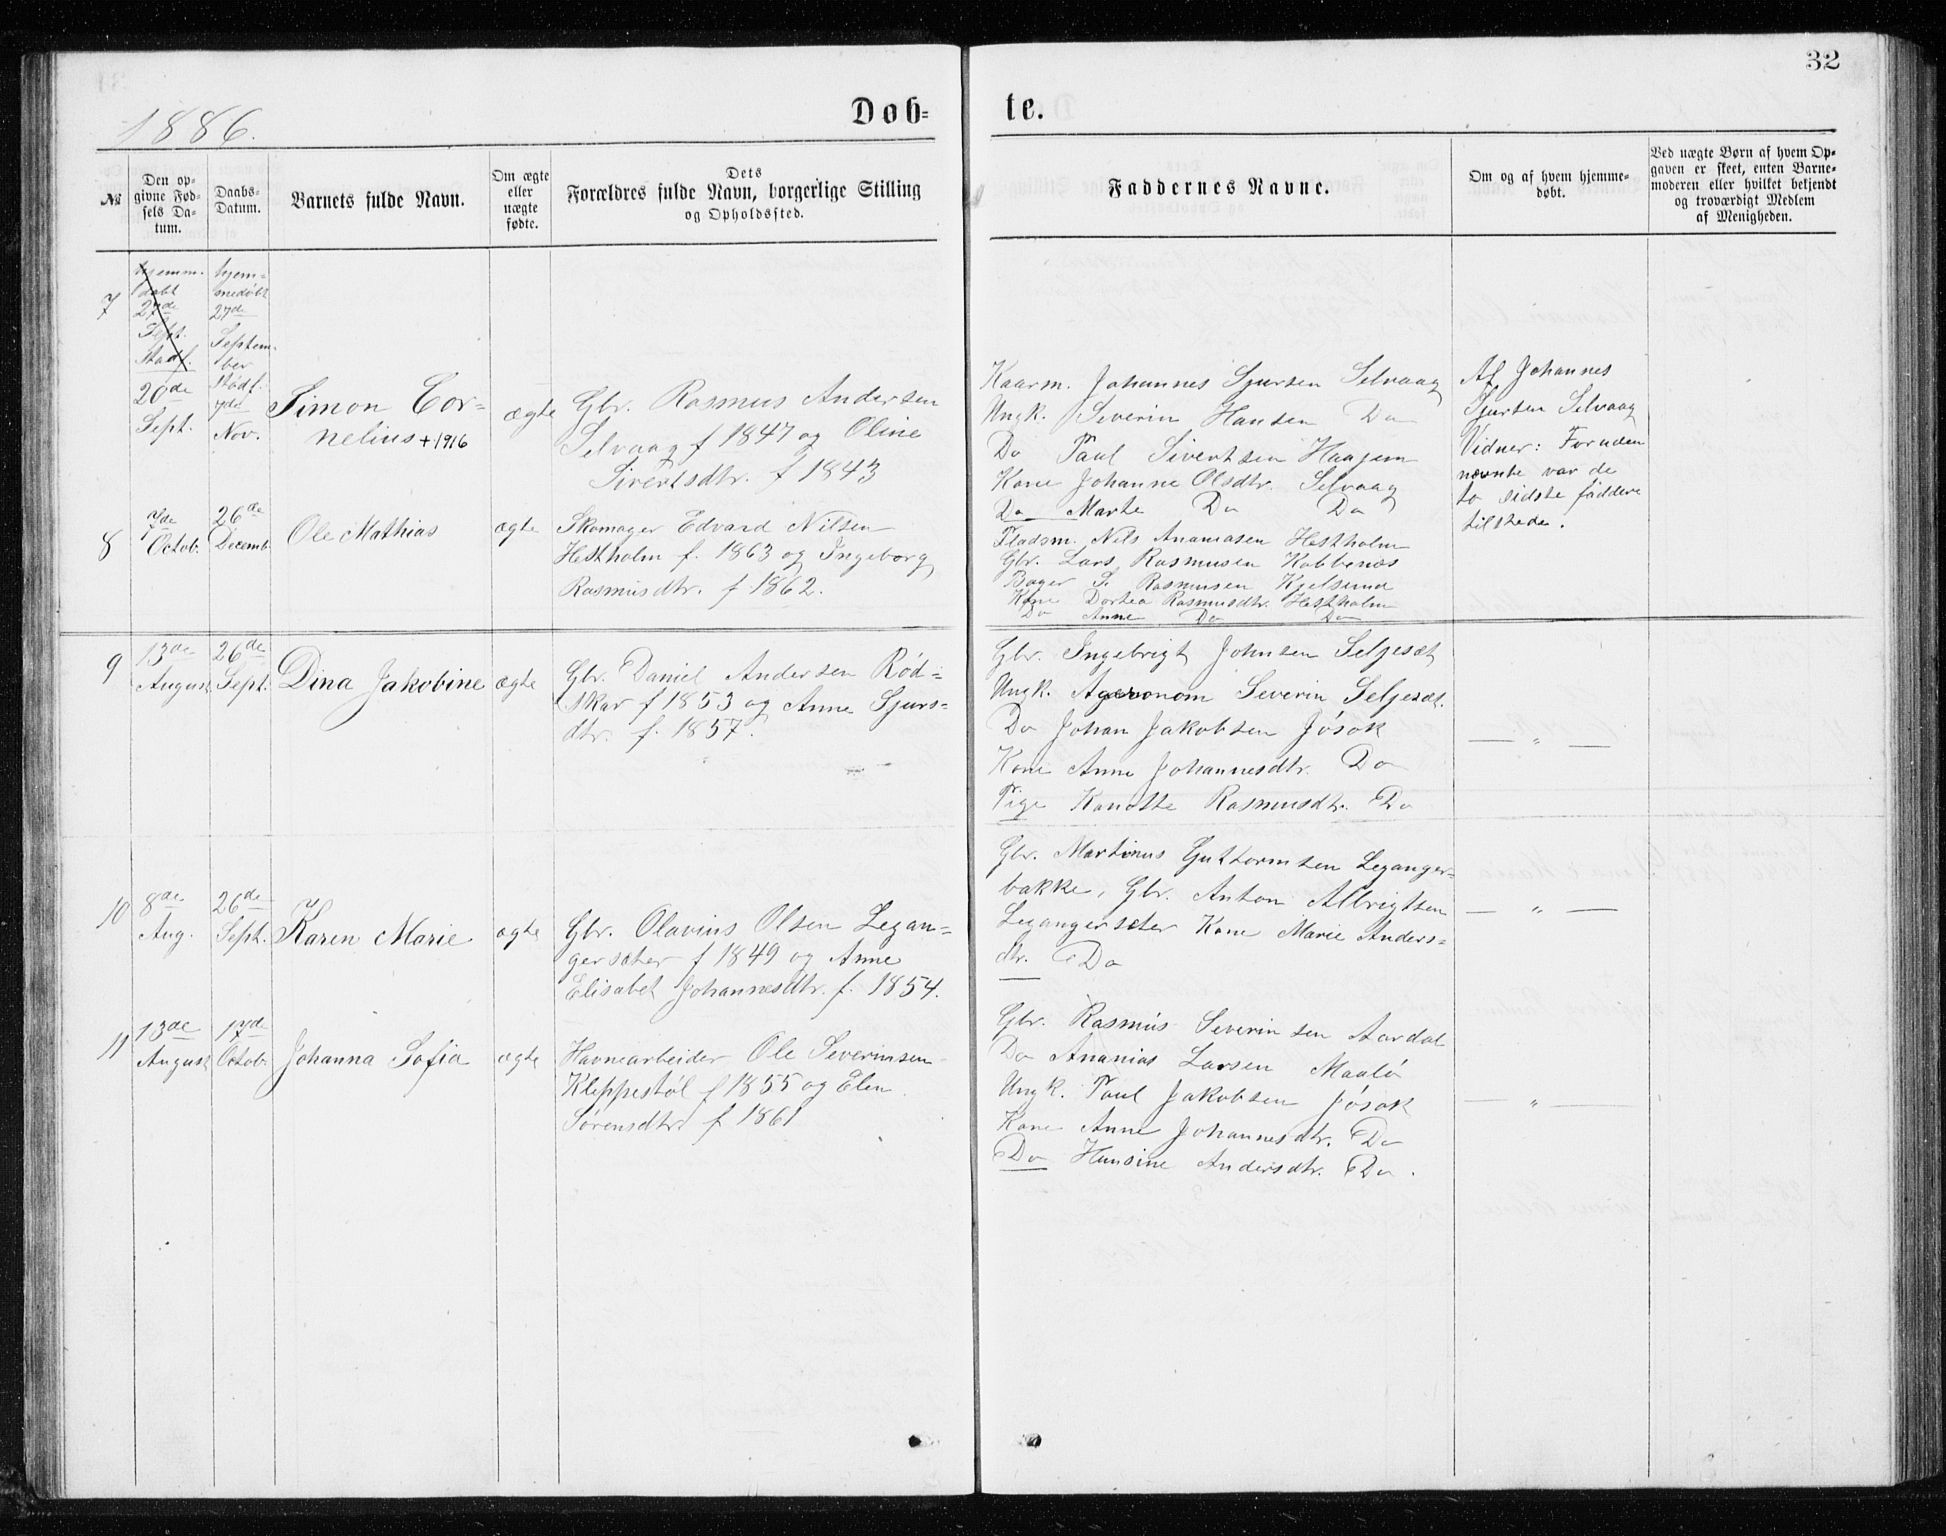 32
1886.
Døb-
te.
№
Den op-
givne Fød-
sels Da-
tum.
Daabs-
Datum.
Barnets fulde Navn.
Om ægte
eller
uægte
fødte.
Dets
Forældres fulde Navn, borgerlige Stilling
og Opholdssted.
Faddernes Navne.
Om og af hvem hjemme-
døbt.
Ved uægte Børn af hvem Op-
gaven er skeet, enten Barne-
moderen eller hvilket bekjendt
og troværdigt Medlem
af Menigheden.
7
hjemm.
døbt
27de
Sept.
Stadf.
20de
Sept.
hjem-
medøbt
27de
Septem-
ber
Stadf.
Nov.
Simon Cor-
nelius +1916
ægte
Gbr. Rasmus Andersen
Selvaag f 1847 og Oline
Sivertsdtr. f 1843
Kaarm. Johannes Sjursen Selvaag
Ungk. Severin Hansen Do
Do Paul Sivertsen Haagem
Kone Johanne Olsdtr. Selvaag
Do Marte Do Do
Af Johannes
Sjursen Selvaag
Vidner: Foruden
nævnte var de
to sidste faddere
tilstede.
8
7de
Octob.
26de
Decemb.
Ole Mathias
ægte
Skomager Edvard Nilsen
Hestholm f. 1863 og Ingeborg
Rasmusdtr. f 1862.
Pladsm. Nils Ananiasen Hestholm
Gbr. Lars Rasmusen Kobbenæs
Bager S. Rasmusen Kjelsund
Kone Dortea Rasmusdtr. Hestholm
Do Anne Do Do
9
13de
August
26de
Sept.
Dina Jakobine
ægte
Gbr. Daniel Andersen Rød-
skar f 1853 og Anne Sjurs-
dtr. f. 1857.
Gbr. Ingebrigt Johnsen Seljesæt
Ungk. Agronom Severin Seljesæt.
Do Johan Jakobsen Jøsok
Kone Anne Johannesdtr. Do
Pige Kanutte Rasmusdtr. Do
— " —
10
8de
Aug.
26de
Sept.
Karen Marie
ægte
Gbr. Olavius Olsen Legan-
gersæter f 1849 og Anne
Elisabet Johannesdtr. f. 1854.
Gbr. Martinus Guttormsen Leganger-
bakke, Gbr. Anton Albrigtsen
Legangersæter Kone Marie Anders-
dtr. Do
— " —
11
13de
August
17de
Octob.
Johanna Sofia
ægte
Havnearbeider Ole Severinsen
Kleppestøl f 1855 og Elen
Sørensdtr f 1861
Gbr. Rasmus Severinsen Aardal
Do Ananias Larsen Maalø
Ungk. Paul Jakobsen Jøsok
Kone Anne Johannesdtr. Do
Do Hansine Andersdtr. Do.
— " —